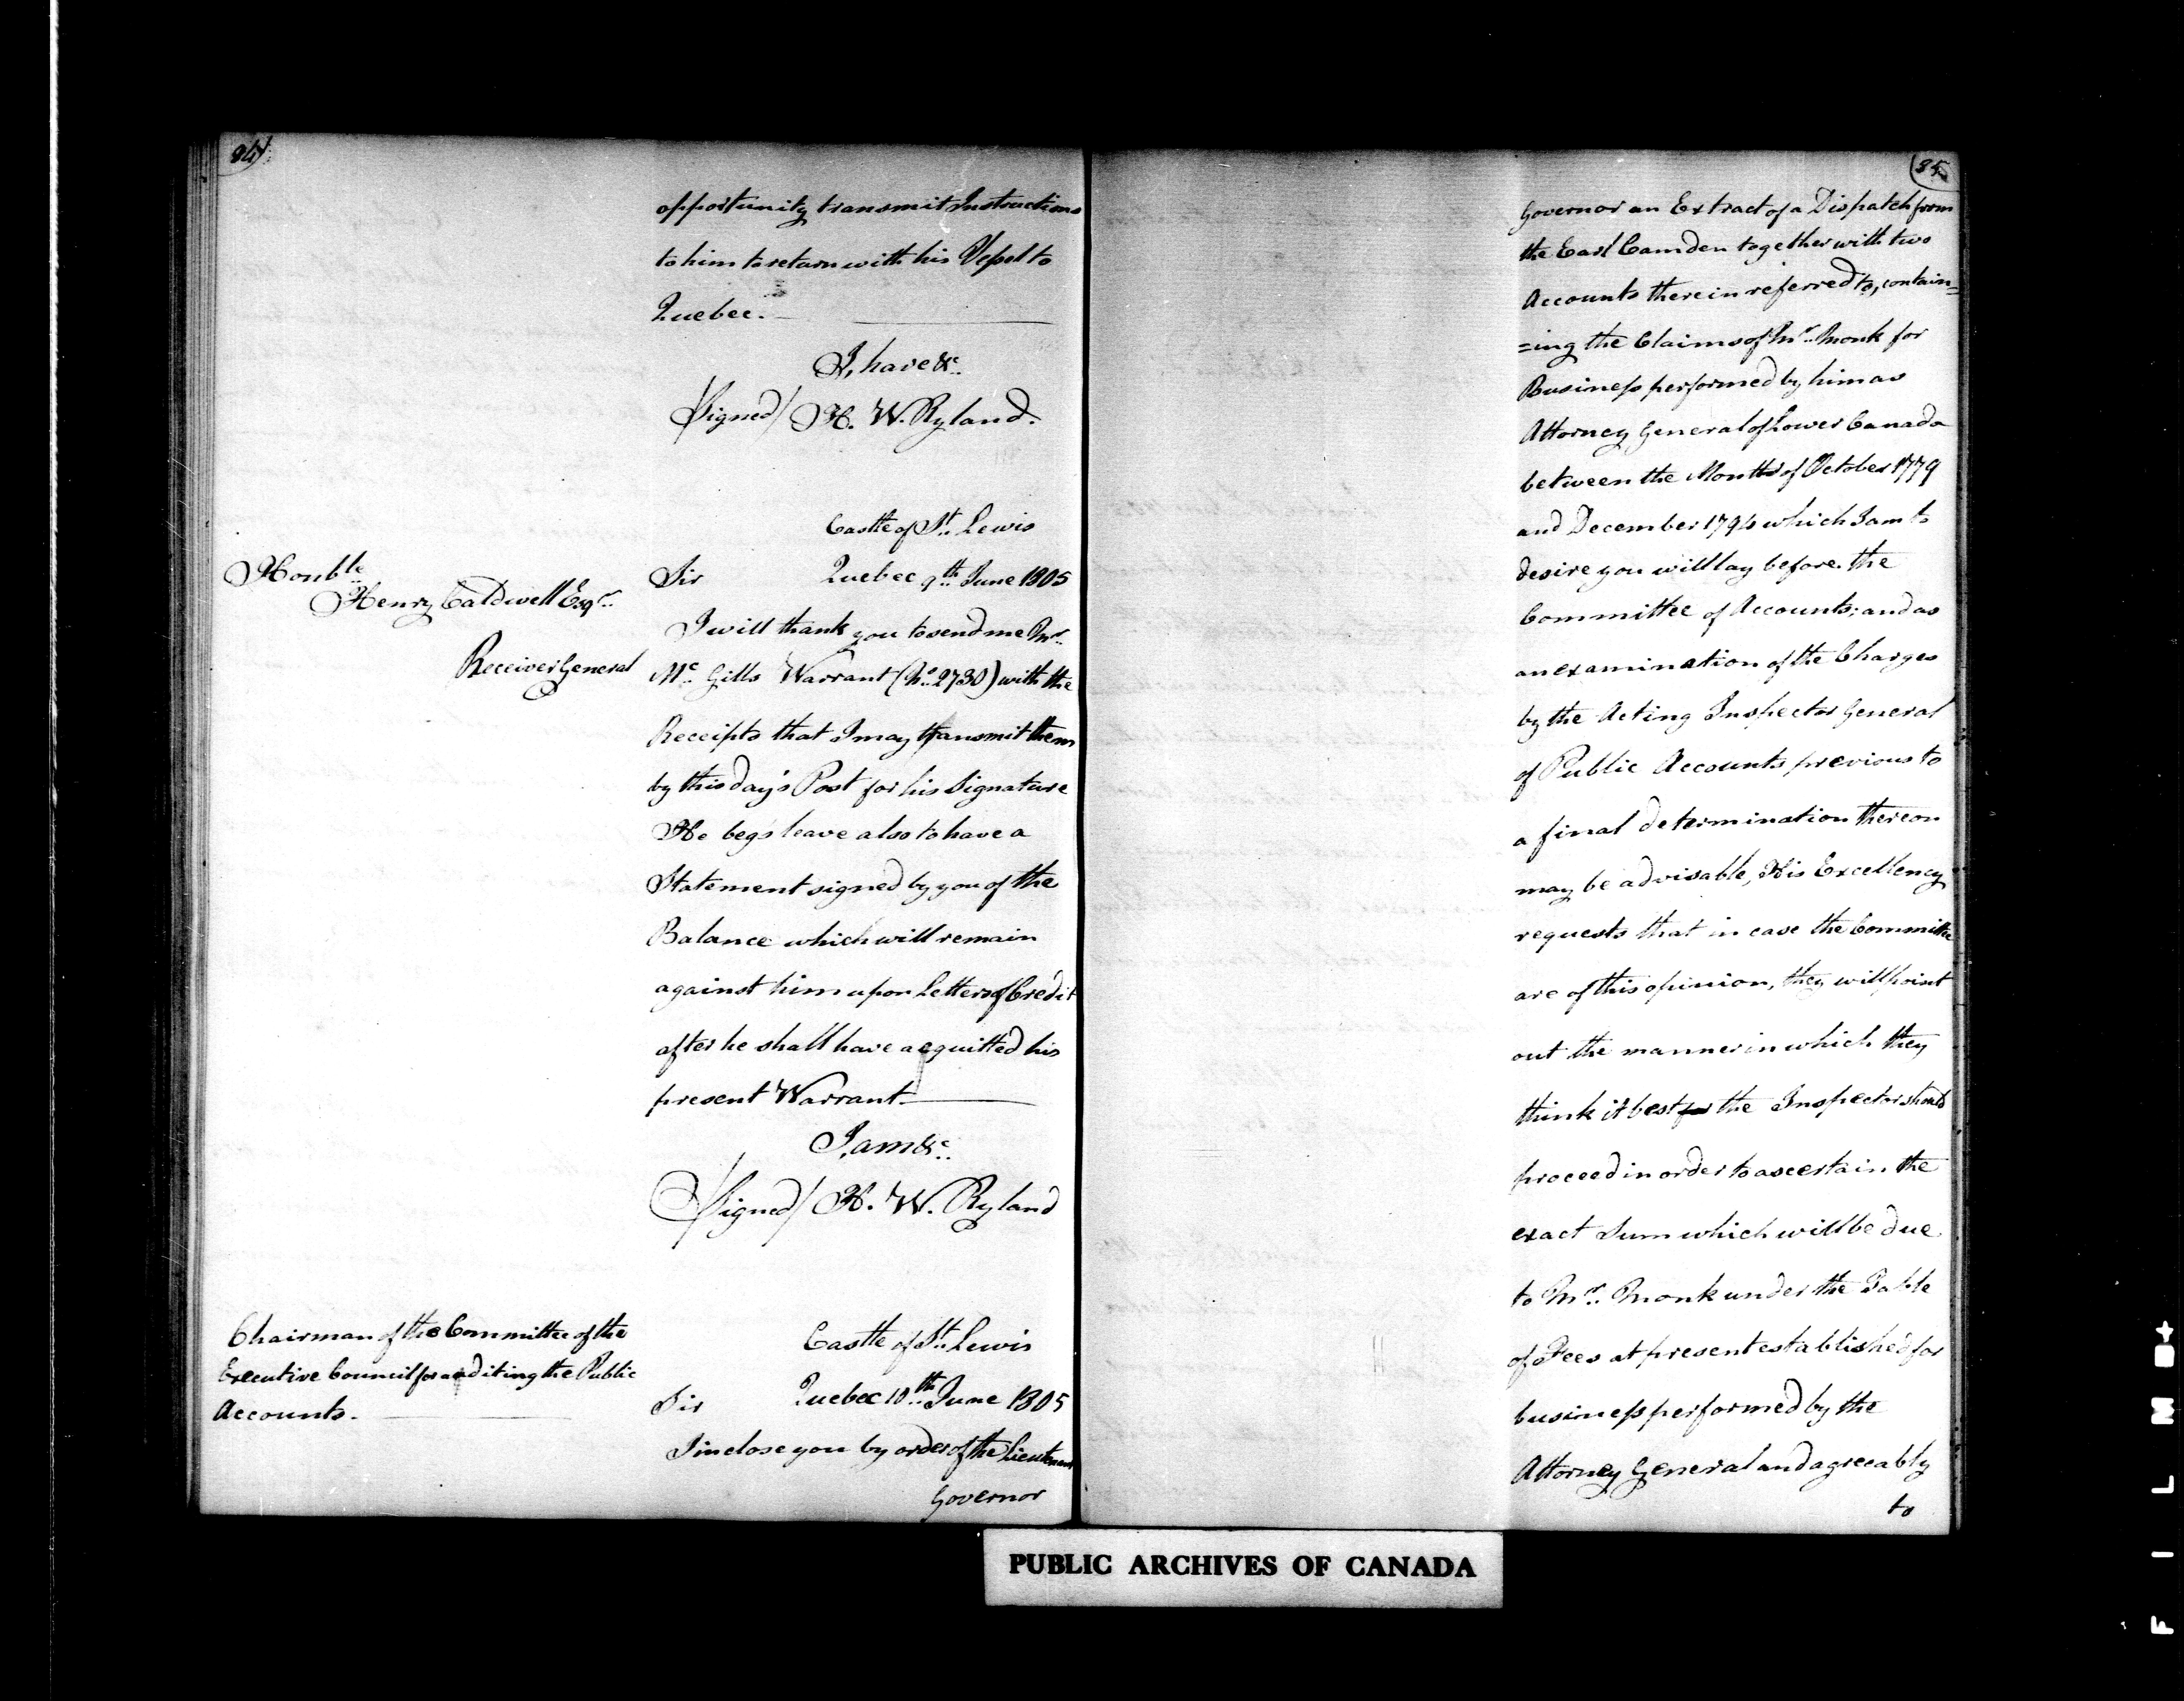 84
opportunity transmit Instructions
to him to return with his Vessel to
Quebec.
I, have &c.
(Signed) H. W. Ryland.
Castle of St. Lewis
Honble.
Henry Caldwell Esqr.
Receiver General
Sir Quebec 9th. June 1805
I will thank you to send me Mr.
Mc. Gills Warrant (No. 2730) with the
Receipts that I may transmit them
by this day's Post for his Signature
He beg's leave also to have a
Statement signed by you of the
Balance which will remain
against him upon Letters of Credit
after he shall have acquitted his
present Warrant.
I, am &c.
(Signed) H. W. Ryland
Chairman of the Committee of the
Executive Council for auditing the Public
Accounts.
Castle of St. Lewis
Sir Quebec 10th. June 1805
I inclose you by order of the Lieutenant
Governor
85
Governor an Extract of a Dispatch from
the Earl Camden together with two
Accounts therein referred to, contain=
=ing the Claims of Mr. Monk for
Business performed by him as
Attorney General of Lower Canada
between the Months of October 1779
and December 1794 which I am to
desire you will lay before the
Committee of Accounts; and as
an examination of the Charges
by the Acting Inspector General
of Public Accounts previous to
a final determination thereon
may be advisable, His Excellency
requests that in case the Committee
are of this opinion, they will point
out the manner in which they
think it best for the Inspector should
proceed in order to ascertain the
exact Sum which will be due
to Mr. Monk under the Table
of Fees at present established for
business performed by the
Attorney General and agreeably
to
PUBLIC ARCHIVES OF CANADA
FILMED